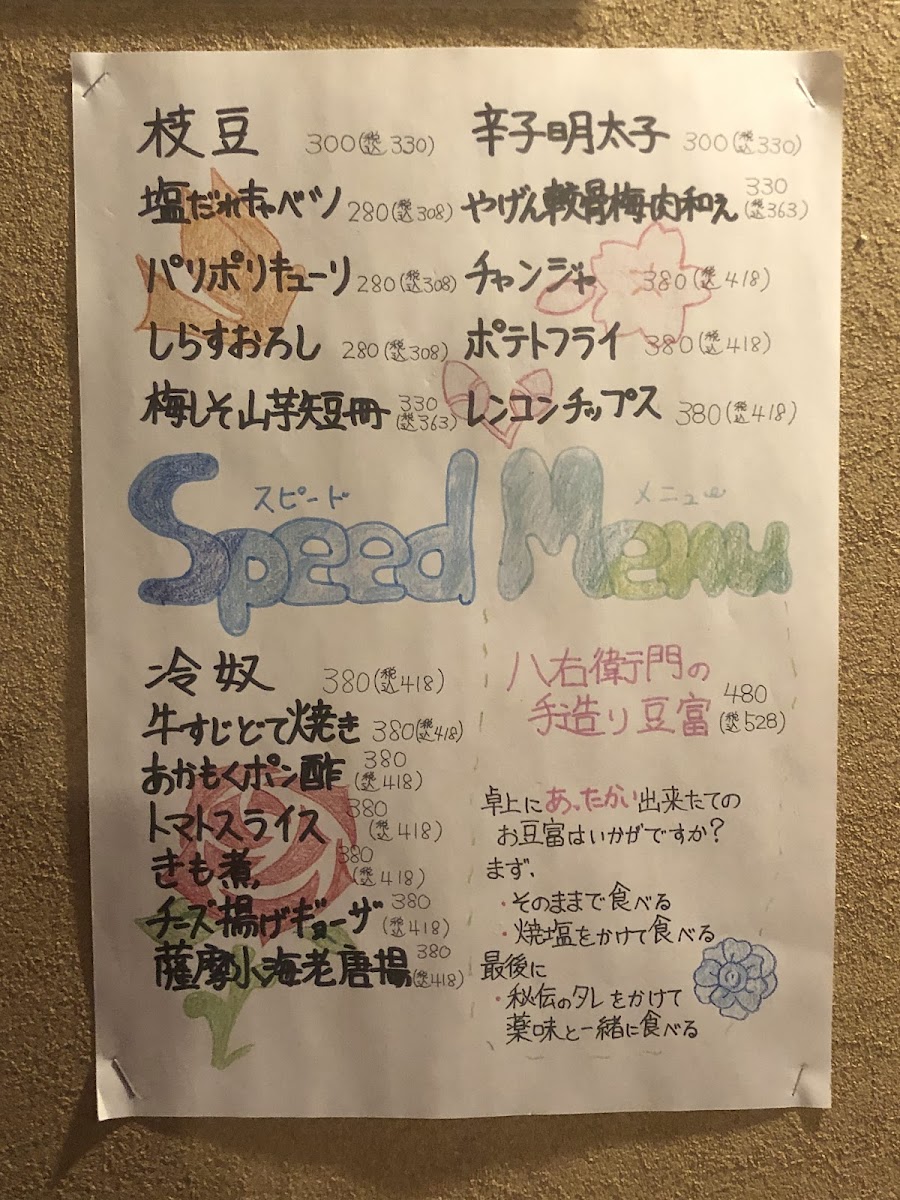 枝豆 300(税込330)
塩だれキャベツ 280(税込308)
パリポリキューリ 280(税込308)
しらすおろし 280(税込308)
梅しそ山芋短冊 330(税込363)
辛子明太子 300(税込330)
やげん軟骨梅肉和え 330(税込363)
チャンジャ 380(税込418)
ポテトフライ 380(税込418)
レンコンチップス 380(税込418)
スピード メニュー
Speed Menu
冷奴 380(税込418)
牛すじどて焼き 380(税込418)
あかもくポン酢 380(税込418)
トマトスライス 380(税込418)
きも煮 380(税込418)
チーズ揚げギョーザ 380(税込418)
薩摩小海老唐揚 380(税込418)
八右衛門の
手造り豆富 480(税込528)
卓上にあったかい出来たての
お豆富はいかがですか?
まず、
・そのままで食べる
・焼塩をかけて食べる
最後に
・秘伝のタレをかけて
薬味と一緒に食べる